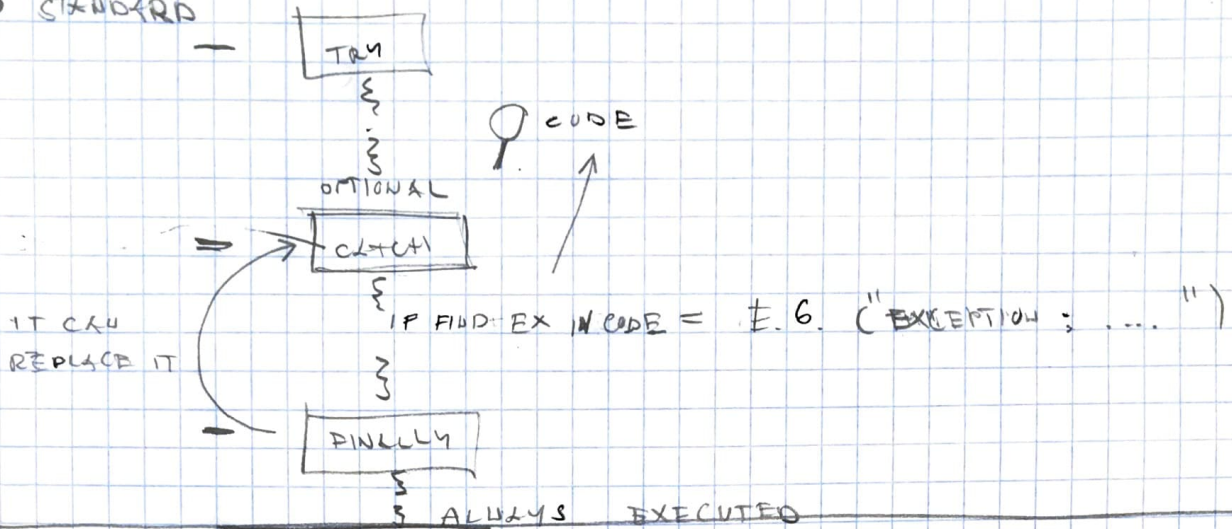 STANDARD
TRY
{
}
CODE
OPTIONAL
CATCH
{
IF FIND EX IN CODE = E.G. ("EXCEPTION : .... ")
IT CAN
REPLACE IT
}
FINALLY
{
} ALWAYS EXECUTED